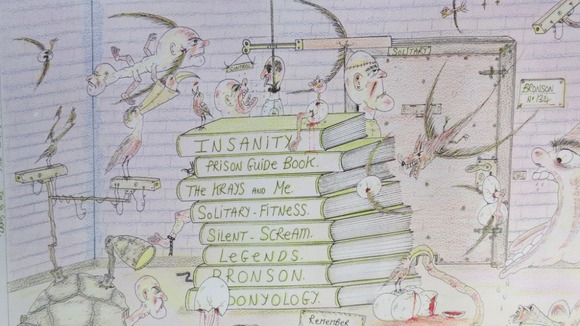 SOLITARY
BRONSON
Nº 1314
INSANITY
PRISON GUIDE BOOK.
THE KRAYS AND ME
SOLITARY-FITNESS.
SILENT-SCREAM.
LEGENDS.
BRONSON.
OONYOLOGY.
Remember